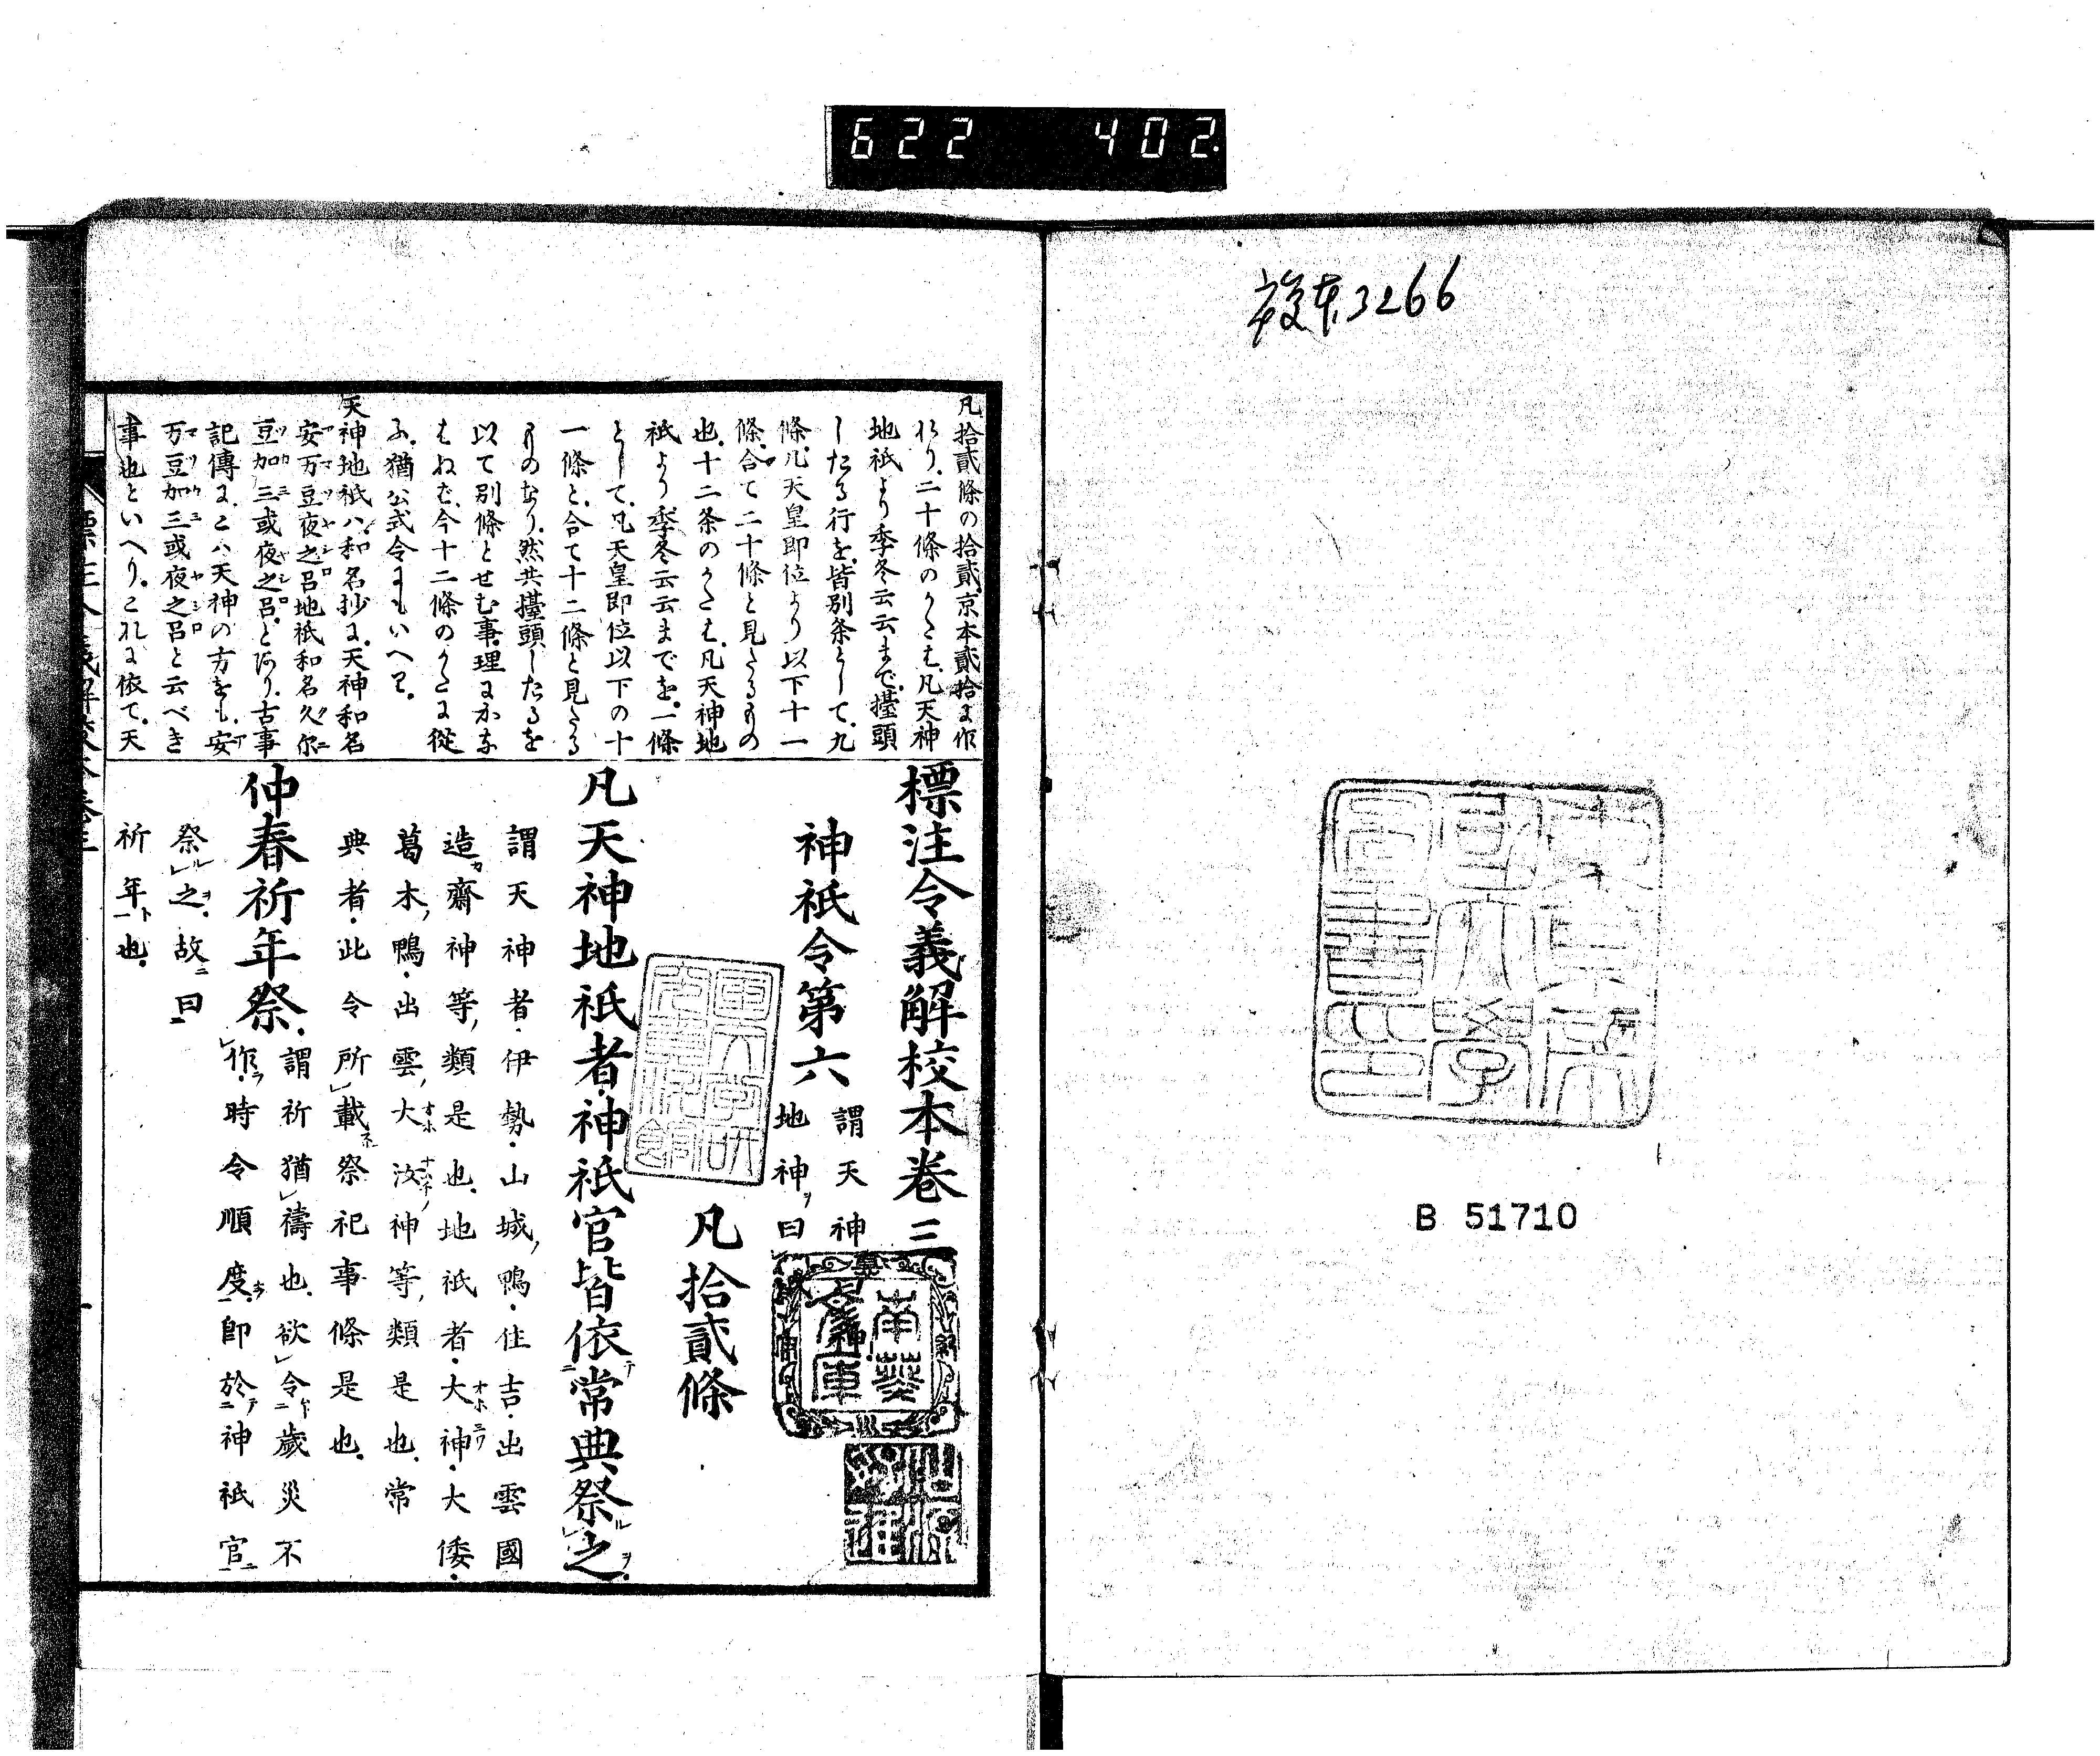 622 402
複本3266
B 51710
凡拾貳條の拾貳京本貳拾に作
れり二十條のかたは凡天神
地祇より季冬云云まで擡頭
したる行を皆別条として九
條凡天皇即位より以下十一
條合て二十條と見たるもの
也十二条のかたは凡天神地
祇より季冬云云までを一條
として凡天皇即位以下の十
一條と合て十二條と見たる
ものなり然共擡頭したるを
以て別條とせむ事理にかな
はねば今十二條のかたに從
ふ猶公式令にもいへり
天神地祇ハ和名抄に天神和名
安万豆夜之呂地祇和名久尓
豆加三或夜之呂とあり古事
記傳にこハ天神の方をも安
万豆加三或夜之呂と云べき
事也といへりこれに依て天
標注令義解校本卷三
神祇令第六
謂天神
地神曰
凡拾貳條
凡天神地祇者神祇官皆依常典祭之
謂天神者伊勢山城鴨住吉出雲國
造齋神等類是也地祇者大神大倭
葛木鴨出雲大汝神等類是也常
典者此令所載祭祀事條是也
仲春祈年祭
謂祈猶禱也欲令歲災不
作時令順度即於神祇官
祭之故曰
祈年也